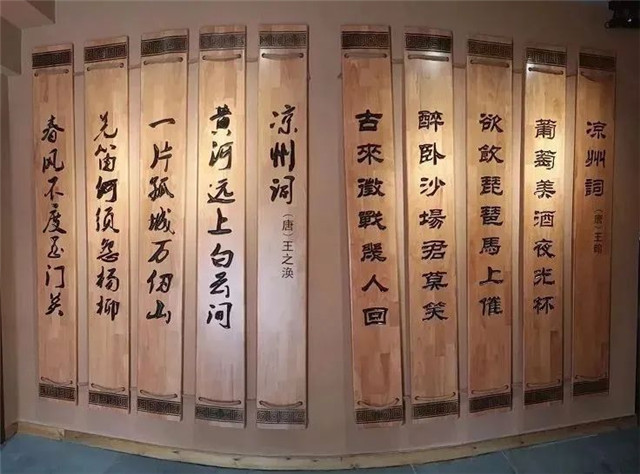 凉州詞（唐）王翰
葡萄美酒夜光杯
欲飲琵琶馬上催
醉卧沙場君莫笑
古來徵戰幾人回
凉州词（唐）王之涣
黄河远上白云间
一片孤城万仞山
羌笛何须怨杨柳
春风不度玉门关